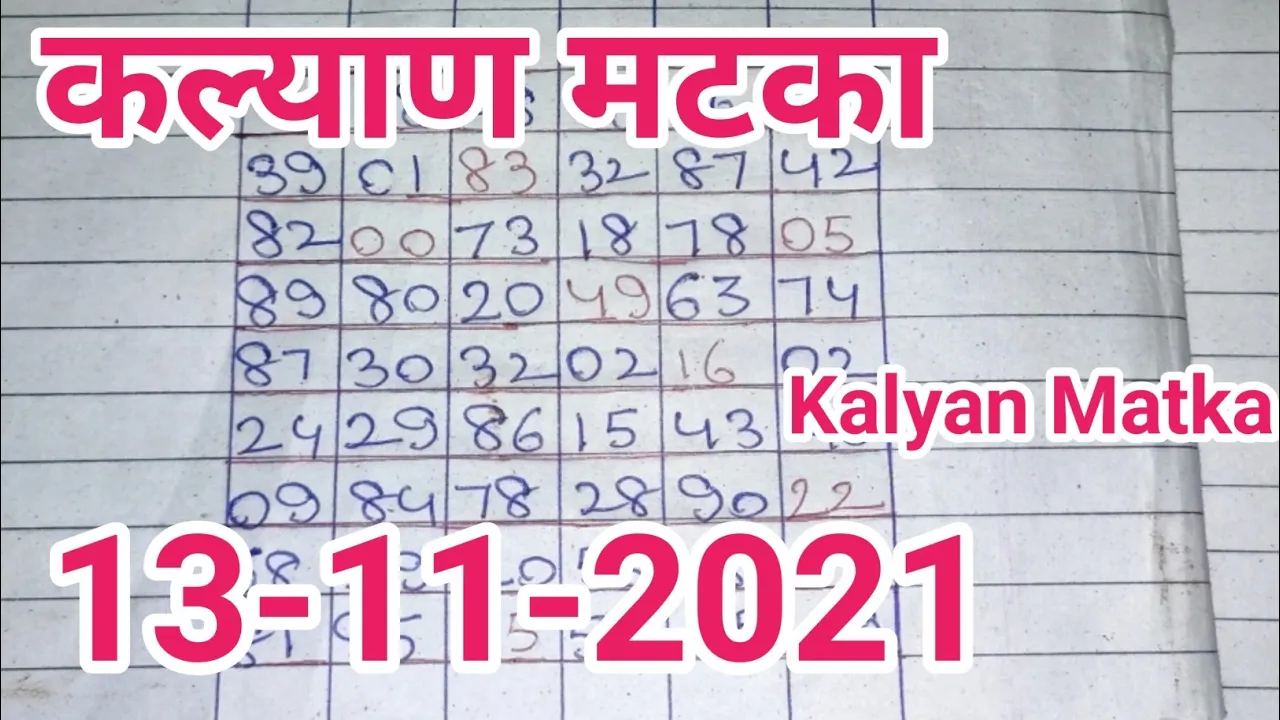 कल्याण मटका
39 01 83 32 87 42
82 00 73 18 78 05
89 80 20 49 63 74
87 30 32 02 16 02
Kalyan Matka
24 29 86 15 43
09 84 78 28 90 22
13-11-2021